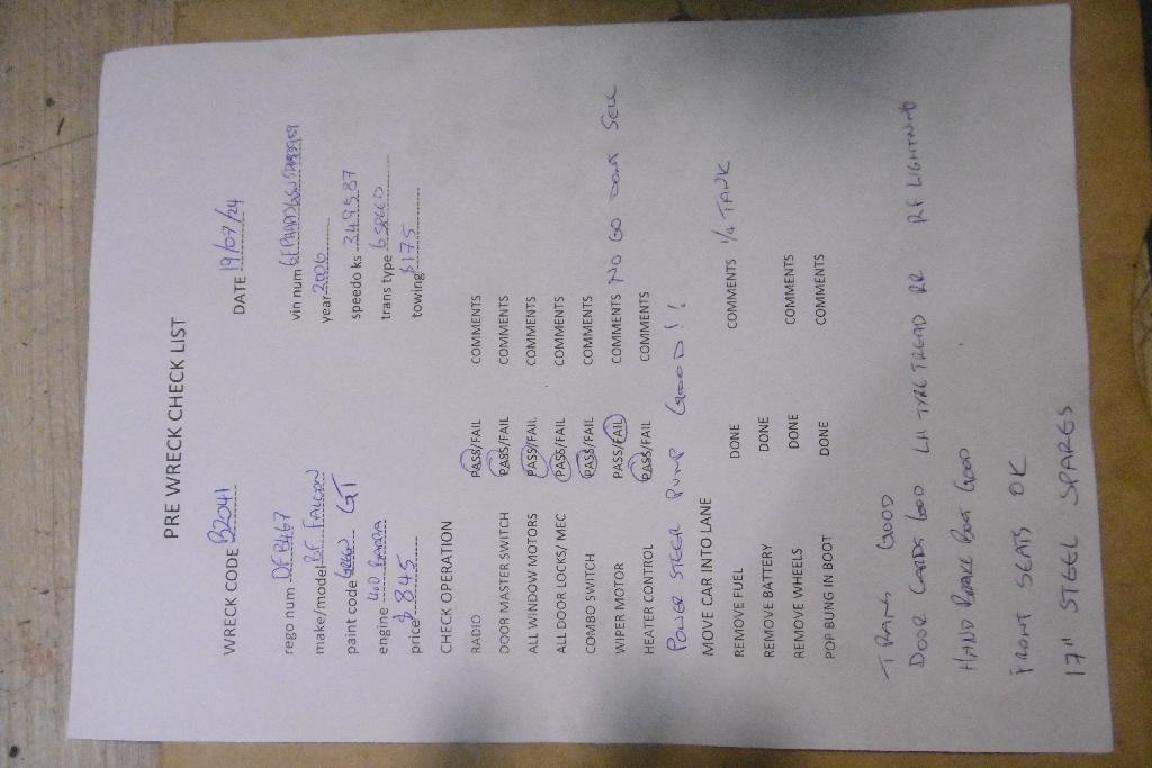 PRE WRECK CHECK LIST
WRECK CODE B2041 DATE 19/07/24
rego num vin num
make/model BF FALCON year 2006
paint code GREEN GT speedo ks 349587
engine 4.0 trans type 6 SPEED
price $845 towing $175
CHECK OPERATION
RADIO PASS/FAIL COMMENTS
DOOR MASTER SWITCH PASS/FAIL COMMENTS
ALL WINDOW MOTORS PASS/FAIL COMMENTS
ALL DOOR LOCKS/ MEC PASS/FAIL COMMENTS
COMBO SWITCH PASS/FAIL COMMENTS
WIPER MOTOR PASS/FAIL COMMENTS NO GO DONT SELL
HEATER CONTROL PASS/FAIL COMMENTS
POWER STEER PUMP GOOD!!
MOVE CAR INTO LANE
REMOVE FUEL DONE COMMENTS 1/4 TANK
REMOVE BATTERY DONE
REMOVE WHEELS DONE COMMENTS
POP BUNG IN BOOT DONE COMMENTS
TRANS GOOD
DOOR CARDS GOOD LH TYRE TREAD RR RF LIGHTNING
HAND BRAKE BOOT GOOD
FRONT SEATS OK
17" STEEL SPARES